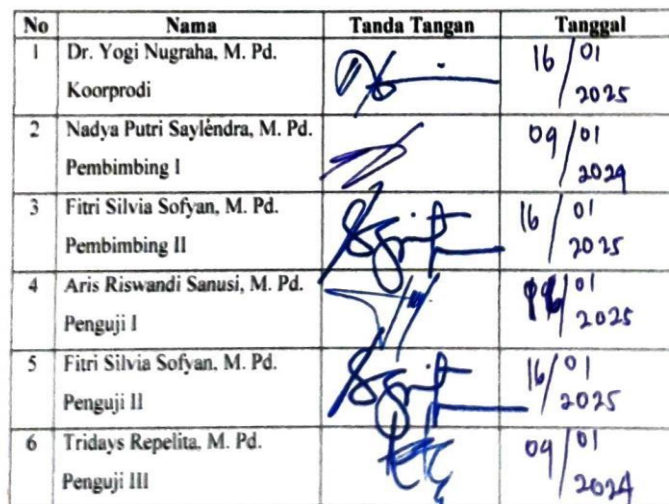 No Nama Tanda Tangan Tanggal
1 Dr. Yogi Nugraha, M. Pd. 16/01
Koorprodi 2025
2 Nadya Putri Saylendra, M. Pd. 09/01
Pembimbing I 2024
3 Fitri Silvia Sofyan, M. Pd. 16/01
Pembimbing II 2025
4 Aris Riswandi Sanusi, M. Pd. 01
Penguji I 2025
5 Fitri Silvia Sofyan, M. Pd. 16/01
Penguji II 2025
6 Tridays Repelita, M. Pd. 09/01
Penguji III 2024